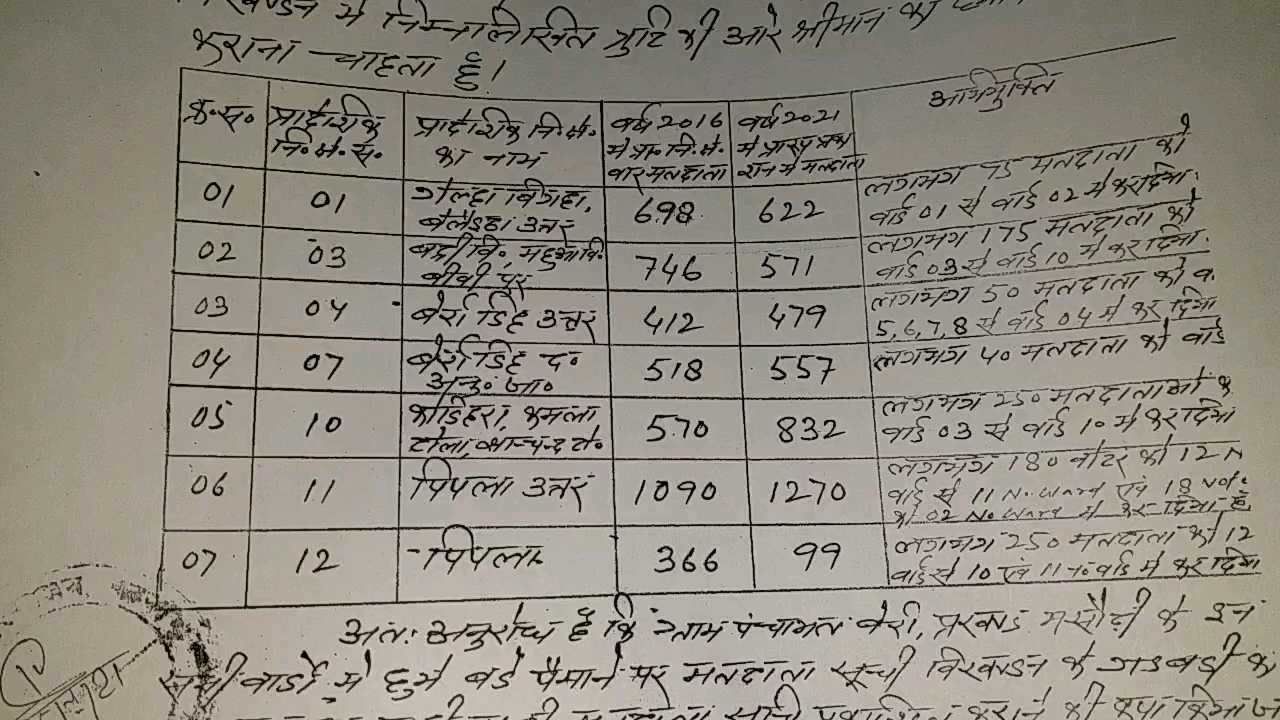 में निम्नलिखित त्रुटि की ओर श्रीमान का
कराना चाहता हूँ।
क्र॰स॰ प्रादेशिक नि॰क्षे॰स॰ प्रादेशिक नि॰क्षे॰ का नाम वर्ष 2016 मे प्रा॰ नि॰क्षे॰ वार मतदाता वर्ष 2021 मे प्रारूप प्रका शन मे मतदाता अभियुक्ति
01 01 गोल्हा बिगहा, उत्तर 698 622 लगभग 75 मतदाता को वार्ड 01 से वार्ड 02 में कर दिया.
02 03 बद्री बि॰, महुआ बि॰ बीबी पुर 746 571 लगभग 175 मतदाता को वार्ड 03 से वार्ड 10 में कर दिया.
03 04 बेर्रा डिह उत्तर 412 479 लगभग 50 मतदाता को व. 5,6,7,8 से वार्ड 04 में कर दिया
04 07 बेर्रा डिह द॰ अनु॰ जा॰ 518 557 लगभग 40 मतदाता को वार्ड
05 10 कोडिहरा, कमला टोला, 570 832 लगभग 250 मतदाताओं क वार्ड 03 से वार्ड 10 में कर दिया
06 11 पिपला उत्तर 1090 1270 लगभग 180 वोटर को 12 N वार्ड से 11 No. ward एवं 18 vote को 02 No ward में कर दिया है
07 12 पिपला 366 99 लगभग 250 मतदाता को 12 वार्ड से 10 एवं 11 न॰ वार्ड में कर दिया
अतः अनुरोध है कि ग्राम पंचायत बेर्रा, प्रखण्ड मसौढ़ी के इन
सभी वार्डो में हुये बड़े पैमाने पर मतदाता सूची विखण्डन के गडबडी को